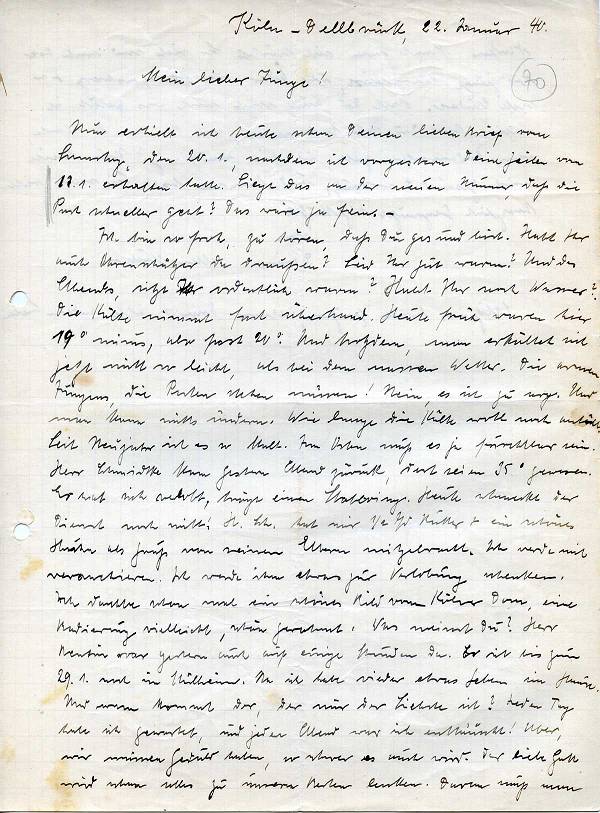 Köln-Dellbrück, 22. Januar 40.
70
Mein lieber Junge!
Nun erhielt ich heute schon Deinen lieben Brief vom
Samstag, den 20.1., nachdem ich vorgestern Dein Zeilen vom
17.1. erhalten hatte. Liegt das an der neuen Nummer, daß die
Post schneller geht? Das wäre ja fein. –
Ich bin so froh, zu hören, daß Du gesund bist. Habt Ihr
auch Ohrenschützer da draußen? Seid Ihr gut warm? Und des
Abends, sitzt Ihr ordentlich warm? Habt Ihr noch Wasser?
Die Kälte nimmt fast überhand. Heute früh waren hier
19° minus, also fast 20°. Und trotzdem, man erkältet sich
jetzt nicht so leicht, als bei dem nassen Wetter. Die armen
Jungens, die Posten stehen müssen! Nein, es ist zu arg. Und
man kann nichts ändern. Wie lange die Kälte wohl noch anhält.
Seit Neujahr ist es so kalt. Im Osten muß es ja furchtbar sein.
Herr Schmidtke kam gestern Abend zurück, dort seien 35° gewesen.
Er hat sich verlobt, trägt einen Ring. Heute schmeckte der
Dienst noch nicht! H. Sch. hat mir ½ Pfd Butter & ein schönes
Huhn als Gruß von seinen Eltern mitgebracht. Ich werde mich
revanchieren. Ich werde ihm etwas zur Verlobung schenken.
Ich dachte schon mal ein schönes Bild vom Kölner Dom, eine
Radierung vielleicht, schön gerahmt. Was meinst Du? Herr
war gestern auch auf einige Stunden da. Er ist bis zum
29.1. noch in Mülheim. Na ich habe wieder etwas Leben im Hause.
Und wann kommt der, der mir der Liebste ist? Jeden Tag
habe ich gewartet, und jeden Abend war ich enttäuscht! Aber,
wir müssen Geduld haben, so schwer es auch wird. Der liebe Gott
wird schon alles zu unserm Besten lenken. Darum muß man